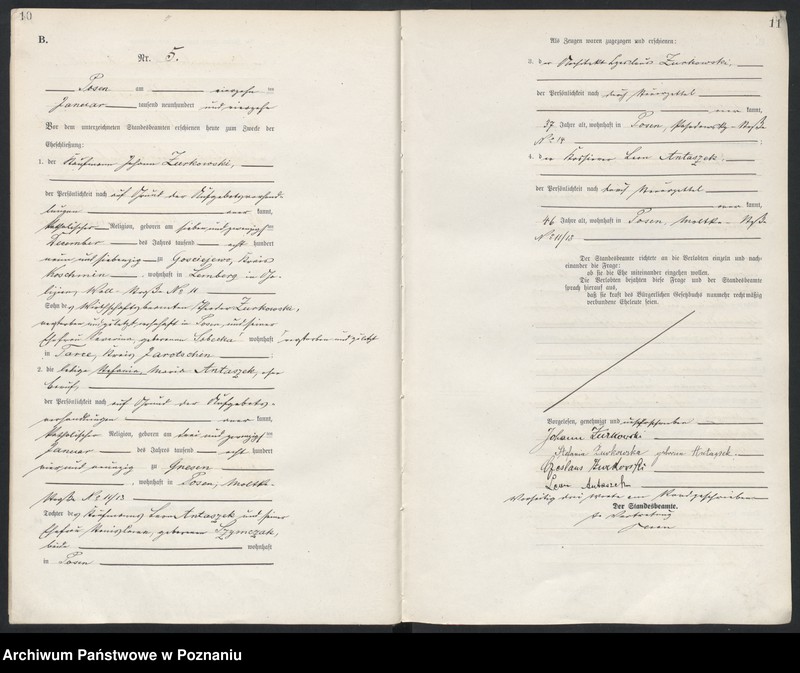 10
B.
Nr. 5.
Posen am vierzehn ten
Januar tausend neunhundert und vierzehn
Vor dem unterzeichneten Standesbeamten erschienen heute zum Zwecke der
Eheschließung:
1. der Kaufmann Johann Zurkowski,
der Persönlichkeit nach auf Grund der Aufgebotsverhand-
lungen kannt,
katholischer Religion, geboren am siebenundzwanzigsten
Dezember des Jahres tausend acht hundert
neun und siebenzig zu Gosciejewo, Kreis
Koschmin, wohnhaft in Lemberg in Ga-
lizien, Wall-Straße No 11
Sohn des Wirthschaftsbeamten Theodor Zurkowski,
verstorben und zuletzt wohnhaft in Posen, und seiner
Ehefrau geborenen Sobecka wohnhaft verstorben und zuletzt
in Tarce, Kreis Jarotschin
2. die ledige Stefania Maria Antaszek, ohne
Beruf,
der Persönlichkeit nach auf Grund der Aufgebots-
verhandlungen kannt,
katholischer Religion, geboren am drei und zwanzigsten
Januar des Jahres tausend acht hundert
vier und neunzig zu Gnesen
, wohnhaft in Posen, Moltke-
Straße No 11/13
Tochter des Kaufmanns Leon Antaszek und seiner
Ehefrau Stanislawa, geborenen Szymczak,
beide wohnhaft
in Posen
11
Als Zeugen waren zugezogen und erschienen:
3. der Architekt Czeslaus Zurkowski,
der Persönlichkeit nach durch
kannt,
37 Jahre alt, wohnhaft in Posen, Straße
No 14
4. der Leon Antaszek,
der Persönlichkeit nach durch
kannt,
46 Jahre alt, wohnhaft in Posen, Moltke-Straße
No 11/13
Der Standesbeamte richtete an die Verlobten einzeln und nach-
einander die Frage:
ob sie die Ehe miteinander eingehen wollen.
Die Verlobten bejahten diese Frage und der Standesbeamte
sprach hierauf aus,
daß sie kraft des Bürgerlichen Gesetzbuchs nunmehr rechtmäßig
verbundene Eheleute seien.
Vorgelesen, genehmigt und unterschrieben
Johann Zurkowski
Stefania Zurkowska geborene Antaszek.
Czeslaus Zurkowski
Leon Antaszek
Vorseitig drei Worte am Rand geschrieben
Der Standesbeamte.
In Vertretung
Archiwum Państwowe w Poznaniu